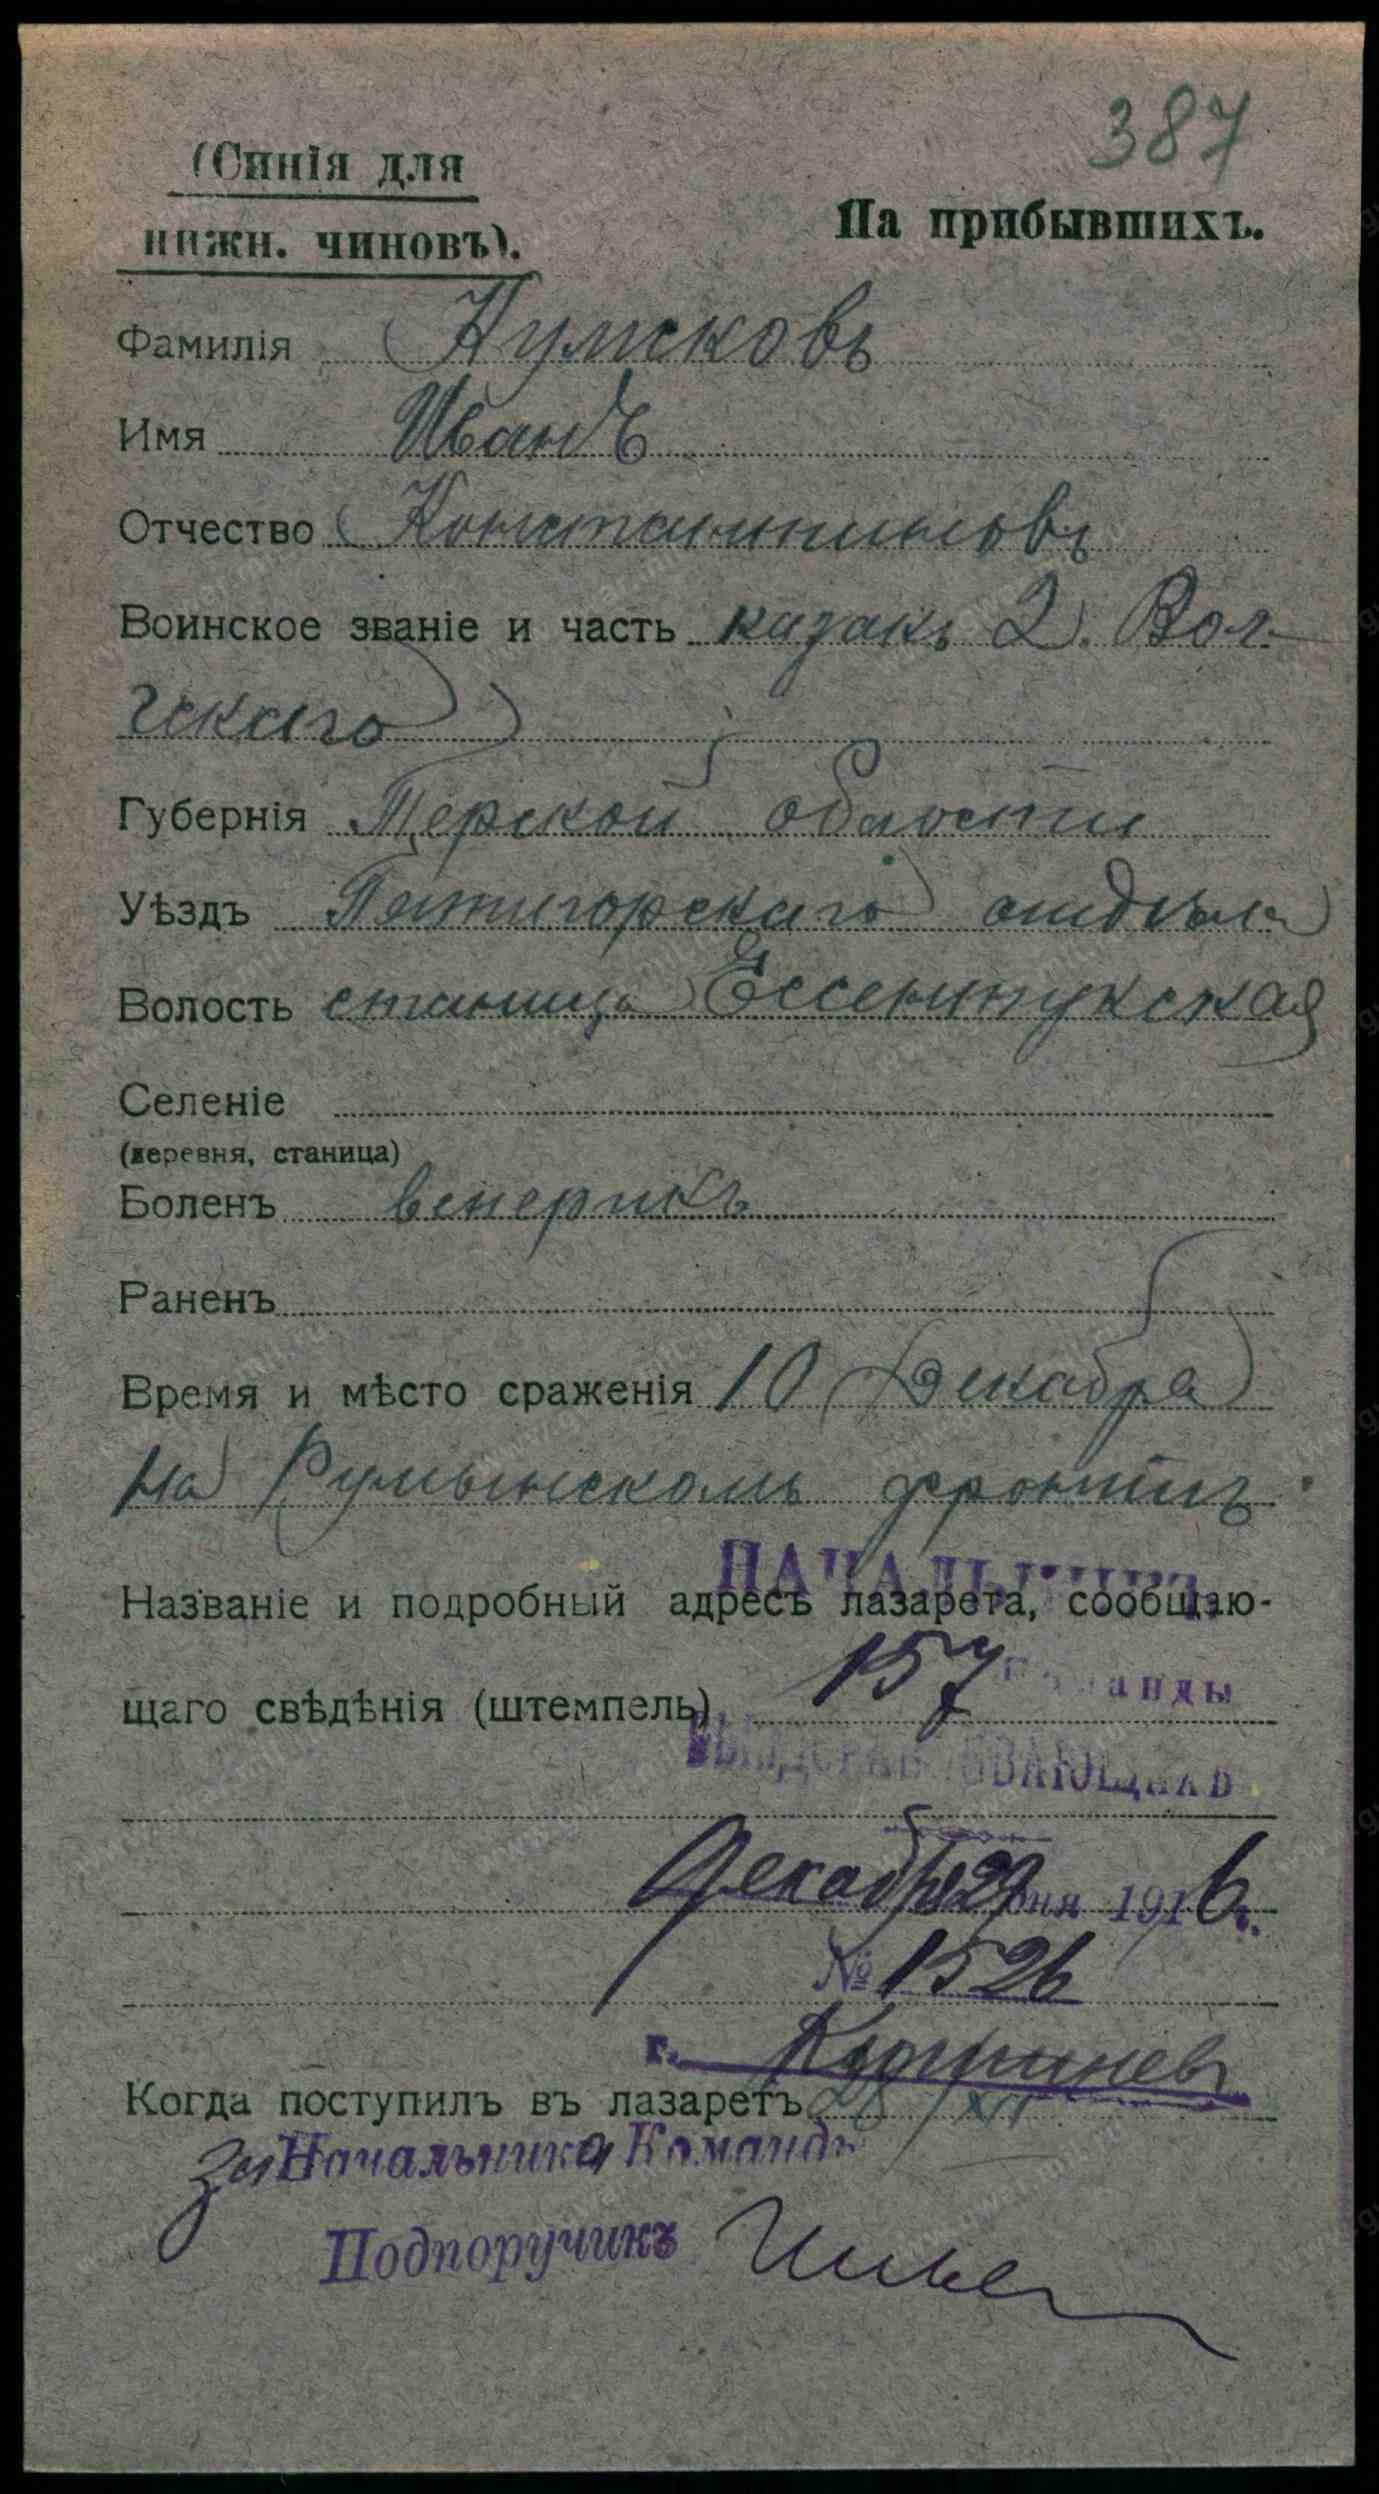 387
(Синія для
нижн. чиновъ).
На прибывшихъ.
Фамилія Кумсковъ
Имя Иванъ
Отчество Константиновъ
Воинское званіе и часть казакъ 2. Вол-
гскаго
Губернія Терской области
Уѣздъ Пятигорскаго отдѣла
Волость станица Ессентукская
Селеніе
(деревня, станица)
Боленъ венерикъ
Раненъ
Время и мѣсто сраженія 10 Декабря
на Румынскомъ фронтѣ.
НАЧАЛЬНИКЪ
Названіе и подробный адресъ лазарета, сообщаю-
щаго свѣдѣнія (штемпель) 157 команды
ВЫЗДОРАВЛИВАЮЩИХЪ
Декабря 29 дня 1916 г.
№ 1526
г. Кишиневъ
Когда поступилъ въ лазаретъ 28/XII
за Начальника Команды
Подпоручикъ